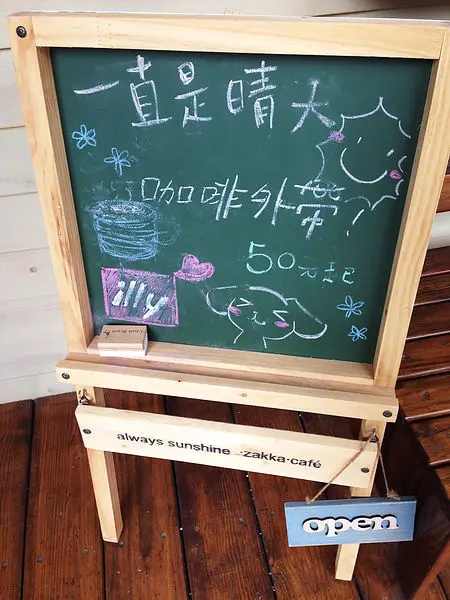 一直是晴天
咖啡外帶
50元起
illy
always sunshine ·zakka·café
open